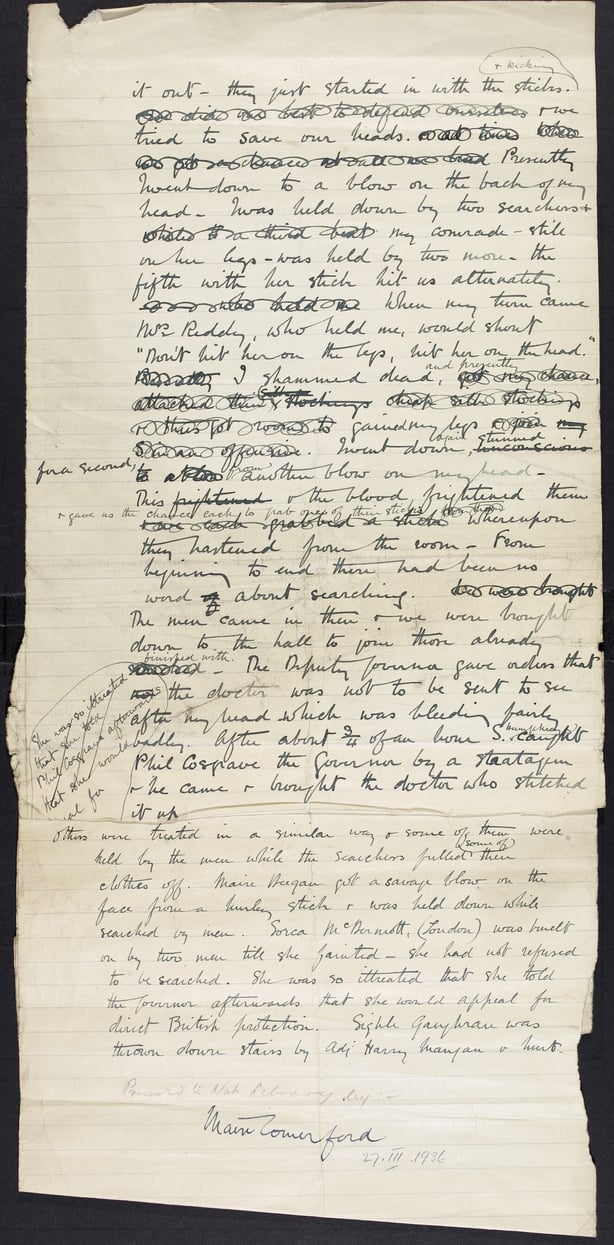 + kicking
it out - they just started in with the sticks.
we did our best to defend ourselves + we
tried to save our heads. Presently
I went down to a blow on the back of my
head - I was held down by two searchers +
my comrade - still
on her legs - was held by two more - the
fifth with her stick hit us alternately.
who held me When my turn came
Mrs Reddy, who held me, would shout
"Don't hit her on the legs, hit her on the head."
and presently
I shammed dead, got my chance,
attacked their silk stockings
+ thus got room to gained my legs + join my
again stunned
offensive. I went down, unconscious
for a second,
to a blow from another blow on my head -
This frightened + the blood, frightened them
+ gave us the chance each to grab one of their sticks
+ we each grabbed a stick Whereupon
they hastened from the room - From
beginning to end there had been no
word of about searching. we were brought
The men came in then + we were brought
down to the hall to join those already
finished with.
searched - The Deputy Governor gave orders that
the doctor was not to be sent to see
after my head which was bleeding fairly
badly. After about 3/4 of an hour S. Humphreys caught
Phil Cosgrave the Governor by a strategem
+ he came + brought the doctor who stitched
it up
She was so illtreated
that she told
Phil Cosgrave afterwards
that she would
al for
Others were treated in a similar way + some of them were
held by the men while the searchers pulled (some of) their
clothes off. Maire Deegan got a savage blow on the
face from a hurley stick + was held down while
searched by men. Sorca McDermott, (London) was knelt
on by two men till she fainted - she had not refused
to be searched. She was so illtreated that she told
the Governor afterwards that she would appeal for
direct British protection. Sighle Gaughran was
thrown down stairs by Adj Harry Mangan + hurt.
Presented to Nat. Library by :-
Maire Comerford
27.III.1936